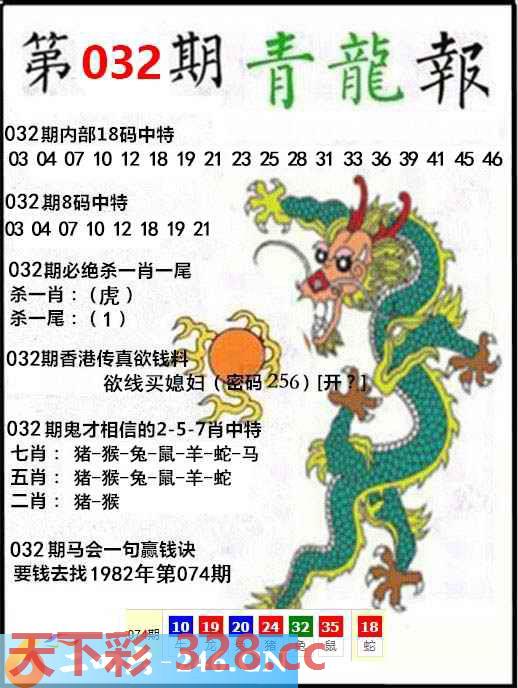 第032期青龍報
032期内部18码中特
03 04 07 10 12 18 19 21 23 25 28 31 33 36 39 41 45 46
032期8码中特
03 04 07 10 12 18 19 21
032期必绝杀一肖一尾
杀一肖：（虎）
杀一尾：（1）
032期香港传真欲钱料
欲线买媳妇（密码256）[开？]
032期鬼才相信的2-5-7肖中特
七肖： 猪-猴-兔-鼠-羊-蛇-马
五肖： 猪-猴-兔-鼠-羊-蛇
二肖： 猪-猴
032期马会一句赢钱诀
要钱去找1982年第074期
074期 10 19 20 24 32 35 18
龙 猪 兔 鼠 蛇
天下彩-328.cc